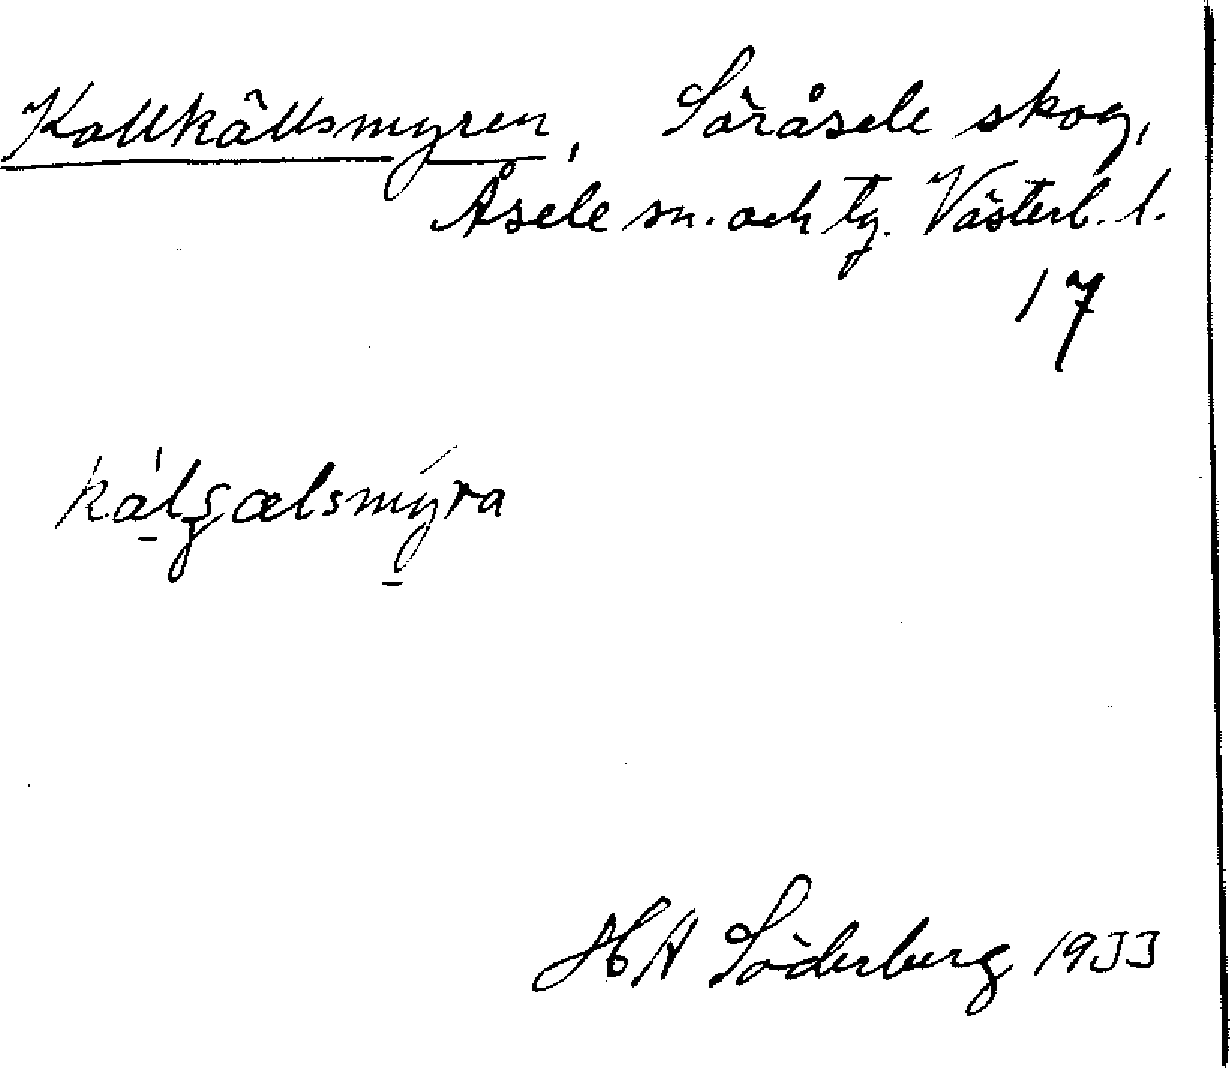 Kallkällsmyren, Söråsele skog,
Åsele sn. och tg. Västerb. l.
17
HA Söderberg 1933